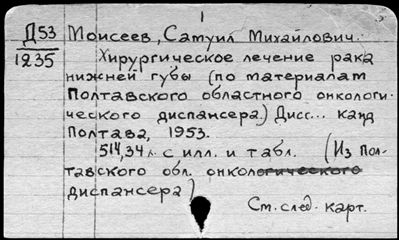 1
Д53 Моисеев, Самуил Михайлович.
1235 Хирургическое лечение рака
нижней губы (по материалам
Полтавского областного онкологи-
ческого диспансера.) Дисс... канд
Полтава, 1953.
514,34 л. с илл. и табл. (Из Пол-
тавского обл. онкологического
диспансера)
См. след. карт.